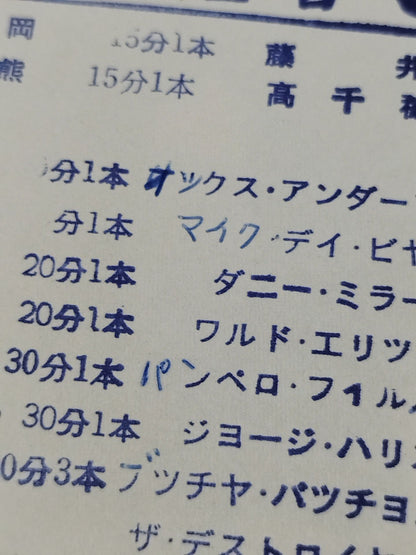 岡 15分1本 藤井
熊 15分1本 高千穂
分1本 オックス・アンダー
分1本 マイク・デイ・ビヤ
20分1本 ダニー・ミラー
20分1本 ワルド・エリツ
30分1本 パンペロ・フイル
30分1本 ジヨージ・ハリ
0分3本 ブツチヤ・バツチヨ
ザ・デストロイヤ